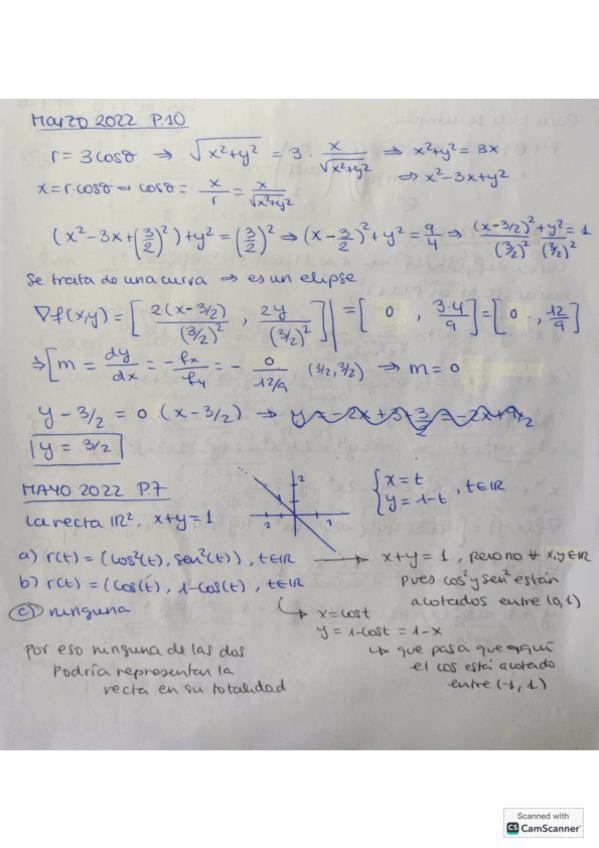 Marzo 2022 P.10
r = 3cosθ ⇒ √(x²+y²) = 3 · x/√(x²+y²) ⇒ x²+y² = 3x
x = r·cosθ → cosθ = x/r = x/√(x²+y²) ⇒ x²-3x+y²
(x²-3x+(3/2)²)+y² = (3/2)² ⇒ (x-3/2)²+y² = 9/4 ⇒ (x-3/2)²/(3/2)² + y²/(3/2)² = 1
Se trata de una curva ⇒ es un elipse
∇f(x,y) = [2(x-3/2)/(3/2)², 2y/(3/2)²]| = [0, 3·4/9] = [0, 12/9]
⇒ [m = dy/dx = -fx/fy = - 0/12/9 (3/2, 3/2) ⇒ m = 0
y - 3/2 = 0 (x - 3/2) ⇒ y = -2x+3+3/2 = -2x+9/2
y = 3/2
MAYO 2022 P.7
2
{x = t
y = 1-t, t∈ℝ
La recta ℝ². x+y=1
2
a) r(t) = (cos²(t), sen²(t)), t∈ℝ → x+y=1, pero no ∀ x,y∈ℝ
pues cos² y sen² están
acotados entre (0,1)
b) r(t) = (cos(t), 1-cos(t)), t∈ℝ
↳ x = cost
y = 1-cost = 1-x
↳ que pasa que aquí
el cos está acotado
entre (-1, 1)
c) ninguna
por eso ninguna de las dos
podría representar la
recta en su totalidad
Scanned with
CS CamScanner